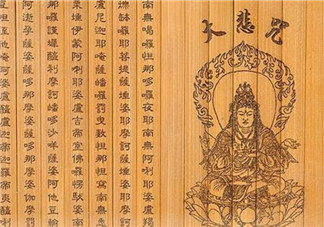 大悲咒
南無喝囉怛那哆囉夜耶南無阿唎耶婆盧羯
爍缽囉耶菩提薩埵婆耶摩訶薩埵婆耶摩訶
盧尼迦耶唵薩皤囉罰曳數怛那怛寫南無
栗埵伊蒙阿唎耶婆盧吉帝室佛囉楞馱婆南
那囉謹墀醯利摩訶皤哆沙咩薩婆阿他豆輸
阿逝孕薩婆薩哆那摩婆薩哆那摩婆伽摩罰
他唵阿婆盧醯盧迦帝迦羅帝夷醯唎